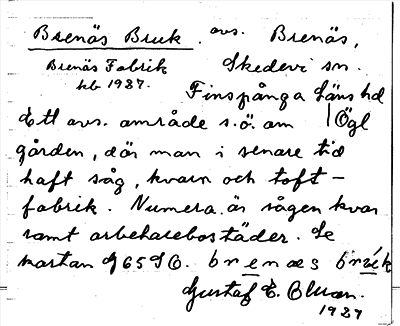 Brenäs Bruk. avs. Brenäs,
Brenäs Fabrik Skedevi sn.
kb 1937. Finspånga läns hd
Ett avs. område s.ö. om Ögl
gården, där man i senare tid
haft såg, kvarn och toft-
fabrik. Numera är sågen kvar
samt arbetarebostäder. Se
kartan
brenæs
Gustaf E.
1937